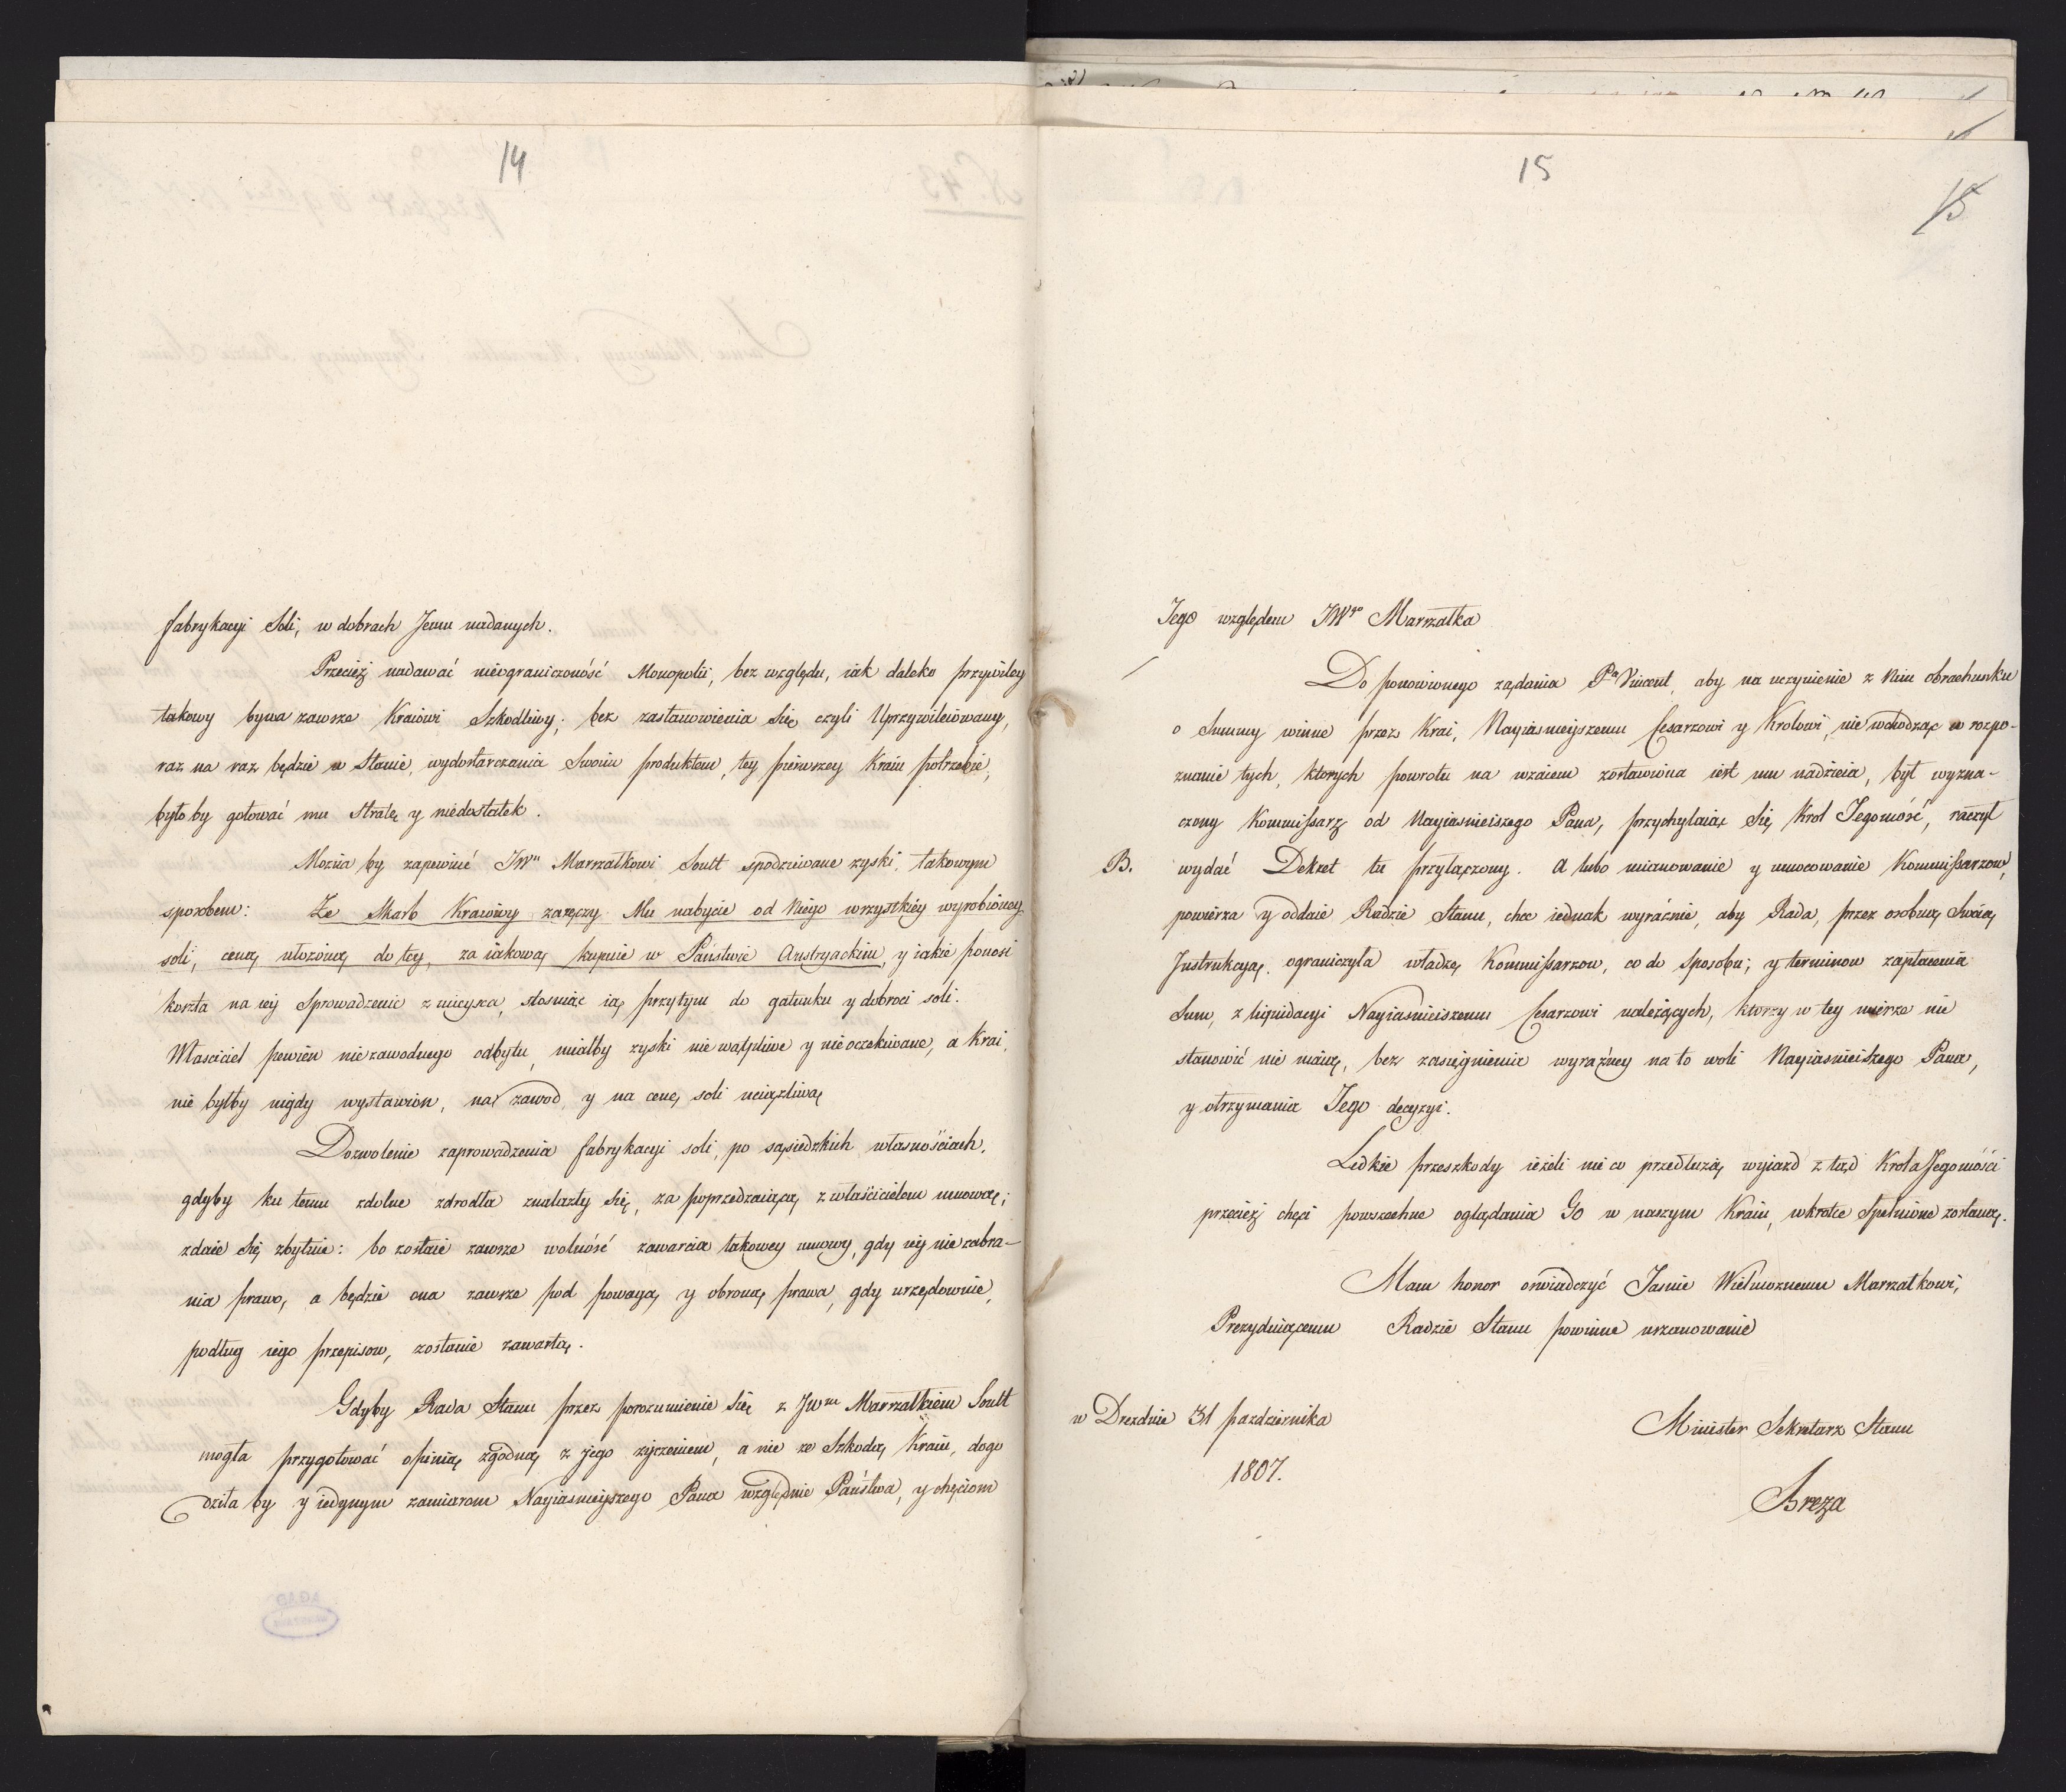 14
fabrykacyi Soli, w dobrach Jemu nadanych.
Przecież nadawać nieograniczoność Monopolii, bez względu, iak daleko przywiley
takowy bywa zawsze Kraiowi Szkodliwy; bez zastanowienia Się czyli Uprzywileiowany,
raz na raz będzie w Stanie, wydostarczania Swoim produktem, tey pierwszey Kraiu potrzebie,
było by gotować mu stratę y niedostatek.
Można by zapewnić JWu Marszałkowi Soult spodziewane zyski, takowym
sposobem: Że Skarb Kraiowy zaręczy Mu nabycie od Niego wszystkiey wyrobioney
soli, ceną ułożoną do tey, za iakową kupuie w Państwie Austryackim, y iakie ponosi
koszta na iey Sprowadzenie z mieysca, stosuiąc ią przytym do gatunku y dobroci soli.
Właściciel pewien niezawodnego odbytu, miałby zyski niewątpliwe y nieoczekiwane, a Krai,
nie byłby nigdy wystawion, na zawod y na cenę soli uciążliwą
Dozwolenie zaprowadzenia fabrykacyi soli, po sąsiedzkich własnościach,
gdyby ku temu zdolne zdrodła znalazły Się, za poprzedzaiącą z właścicielem umową;
zdaie Się zbytnie: bo zostaie zawsze wolność zawarcia takowey umowy, gdy iey nie zabra-
nia prawo, a będzie ona zawsze pod powagą y obroną prawa, gdy urzędownie,
podług iego przepisow, zostanie zawartą.
Gdyby Rada Stanu przez porozumienie Się z JWm Marszałkiem Soult
mogła przygotować opinią zgodną z jego życzeniem, a nie ze Szkodą Kraiu, dogo
dziła by y iedynym zamiarom Nayiasnieyszego Pana względnie Państwa, y chęciom
15
15
Jego względem JWgo Marszałka
Do ponowionego żądania Pa Vincent, aby na uczynienie z Nim obrachunku
o Summy winne przez Krai, Nayiasnieyszemu Cesarzowi y Krolowi, nie wchodząc w rozpo-
znanie tych, ktorych powrotu na wzaiem zostawiona iest mu nadzieia, był wyzna-
czony Kommissarz od Nayiasnieiszego Pana, przychylaiąc Się Krol Jegomość, raczył
B. wydać Dekret tu przyłączony. A lubo mianowanie y umocowanie Kommissarzow,
powierza y oddaie Radzie Stanu, chce iednak wyraźnie, aby Rada, przez osobną Swoią
Instrukcyą, ograniczyła władzę Kommissarzow, co do Sposobu, y terminow zapłacenia
Sum, z liquidacyi Nayiasnieiszemu Cesarzowi należących, ktorzy w tey mierze nic
stanowić nie maią, bez zasiągnienia wyraźney na to woli Nayiasnieiszego Pana,
y otrzymania Jego decyzyi.
Ledkie przeszkody ieżeli nieco przedłużą wyiazd z tąd Krola Jegomości
przecież chęci powszechne oglądania Go w naszym Kraiu, wkrotce Spełnione zostaną.
Mam honor oswiadczyć Jasnie Wielmożnemu Marszałkowi,
Prezyduiącemu Radzie Stanu powinne uszanowanie
w Dreznie 31 pazdziernika
1807.
Minister Sekretarz Stanu
Breza